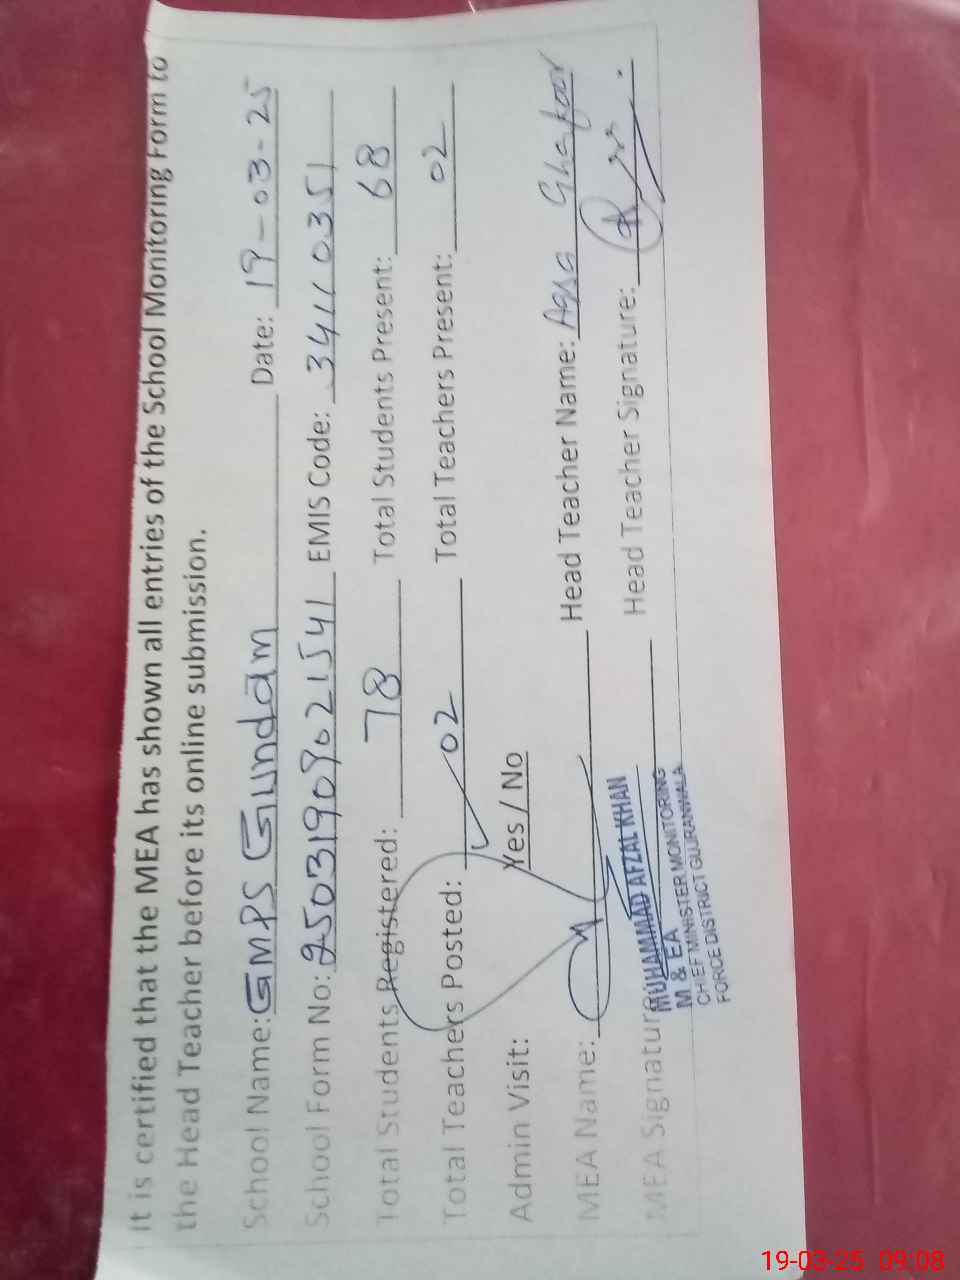 It is certified that the MEA has shown all entries of the School Monitoring Form to
the Head Teacher before its online submission.
School Name: GMPS Gundam Date: 19-03-25
School Form No: 25031909021541 EMIS Code: 34110351
Total Students Registered: 78 Total Students Present: 68
Total Teachers Posted: 02 Total Teachers Present: 02
Admin Visit: Yes / No
MEA Name: Head Teacher Name: Aqsa Ghafoor
MEA Signature: Head Teacher Signature:
MUHAMMAD AFZAL KHAN
M & EA
CHIEF MINISTER MONITORING
FORCE DISTRICT GUJRANWALA
19-03-25 09:08